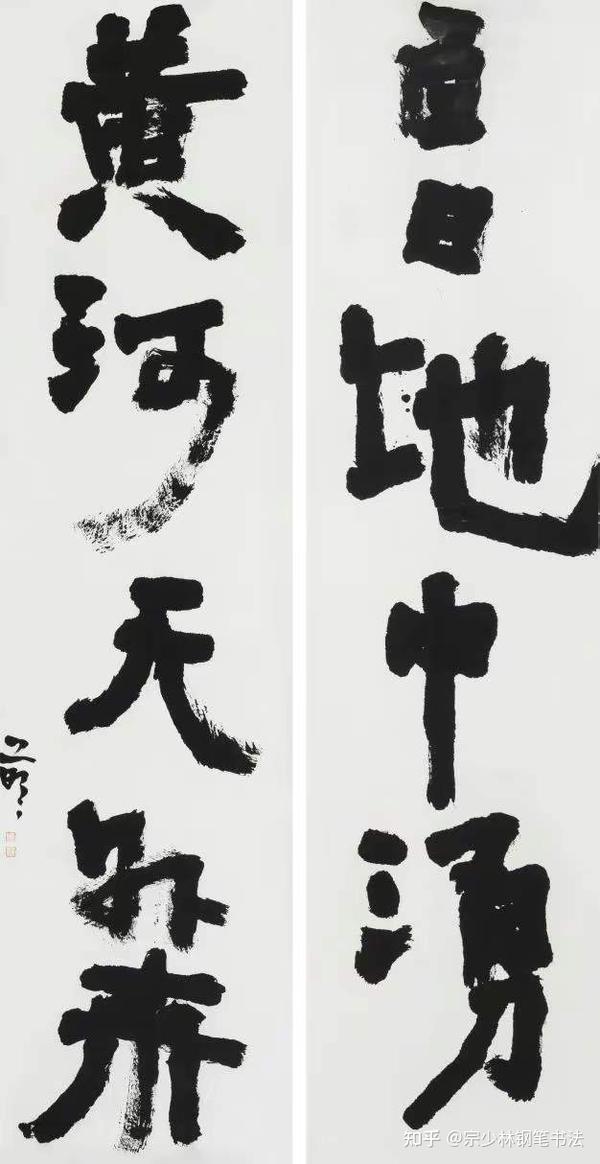 白日地中湧
黄河天外来
知乎 @宗少林钢笔书法